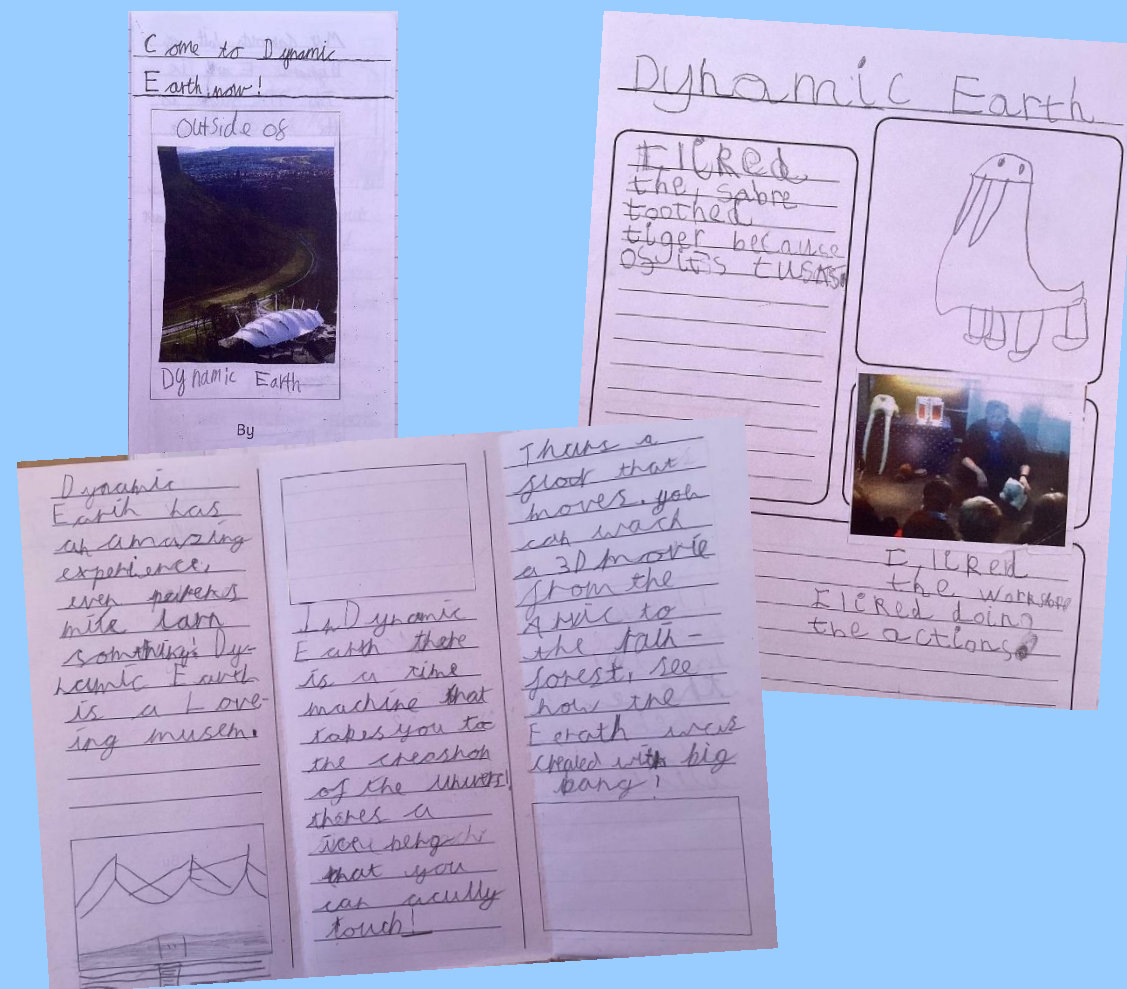 Come to Dynamic
Earth now!
Outside of
Dynamic Earth
By
Dynamic Earth
I liked
the, sabre
toothed
tiger because
of it's tusks
I liked
the workshop
I liked doing
the actions
Dynamic
Earth has
an amazing
experience,
even
mite larn
somthing! Dy-
namic Earth
is a Love-
ing musem.
In Dynamic
Earth there
is a time
machine that
takes you to
the creashon
of the univers!
theres a
that you
can acully
touch!
Thairs a
floor that
moves. you
can wach
a 3D movie
from the
Artic to
the rain-
forest, see
how the
Eerath was
created with big
bang!